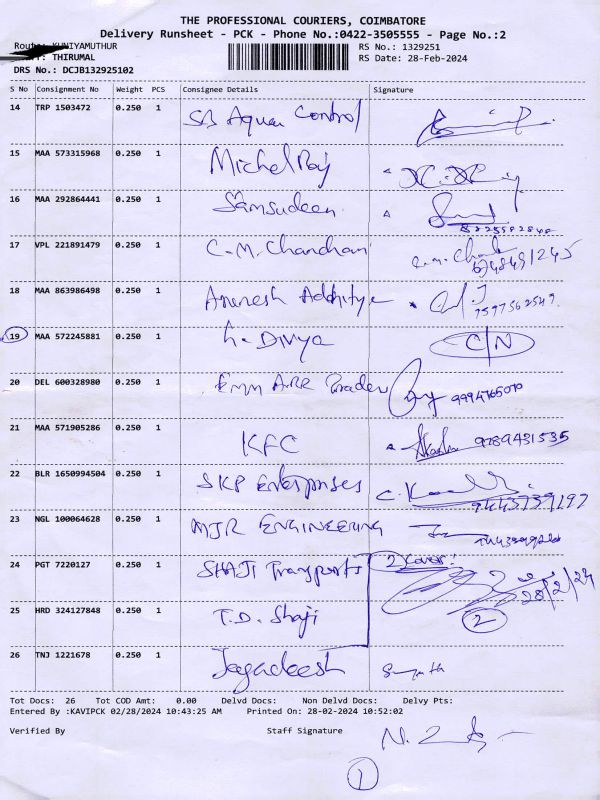 THE PROFESSIONAL COURIERS, COIMBATORE
Delivery Runsheet - PCK - Phone No.:0422-3505555 - Page No.:2
Route: KUNIYAMUTHUR RS No.: 1329251
: THIRUMAL RS Date: 28-Feb-2024
DRS No.: DCJB132925102
S No Consignment No Weight PCS Consignee Details Signature
14 TRP 1503472 0.250 1 SB Aqua Control
15 MAA 573315968 0.250 1 Michel Raj
16 MAA 292864441 0.250 1 Samsudeen
17 VPL 221891479 0.250 1 C.M. Chandran
18 MAA 863986498 0.250 1 7597562549
19 MAA 572245881 0.250 1 Divya C/N
20 DEL 600328980 0.250 1 EMM ARR Traders
21 MAA 571905286 0.250 1 KFC 9789431535
22 BLR 1650994504 0.250 1 SKP Enterprises
23 NGL 100064628 0.250 1 MJR ENGINEERING
24 PGT 7220127 0.250 1 SHAJI Transports 2 cover!
28/2/24
25 HRD 324127848 0.250 1 T.D. Shaji 2
26 TNJ 1221678 0.250 1 Jagadeesh
Tot Docs: 26 Tot COD Amt: 0.00 Delvd Docs: Non Delvd Docs: Delvy Pts:
Entered By :KAVIPCK 02/28/2024 10:43:25 AM Printed On: 28-02-2024 10:52:02
Verified By Staff Signature
1